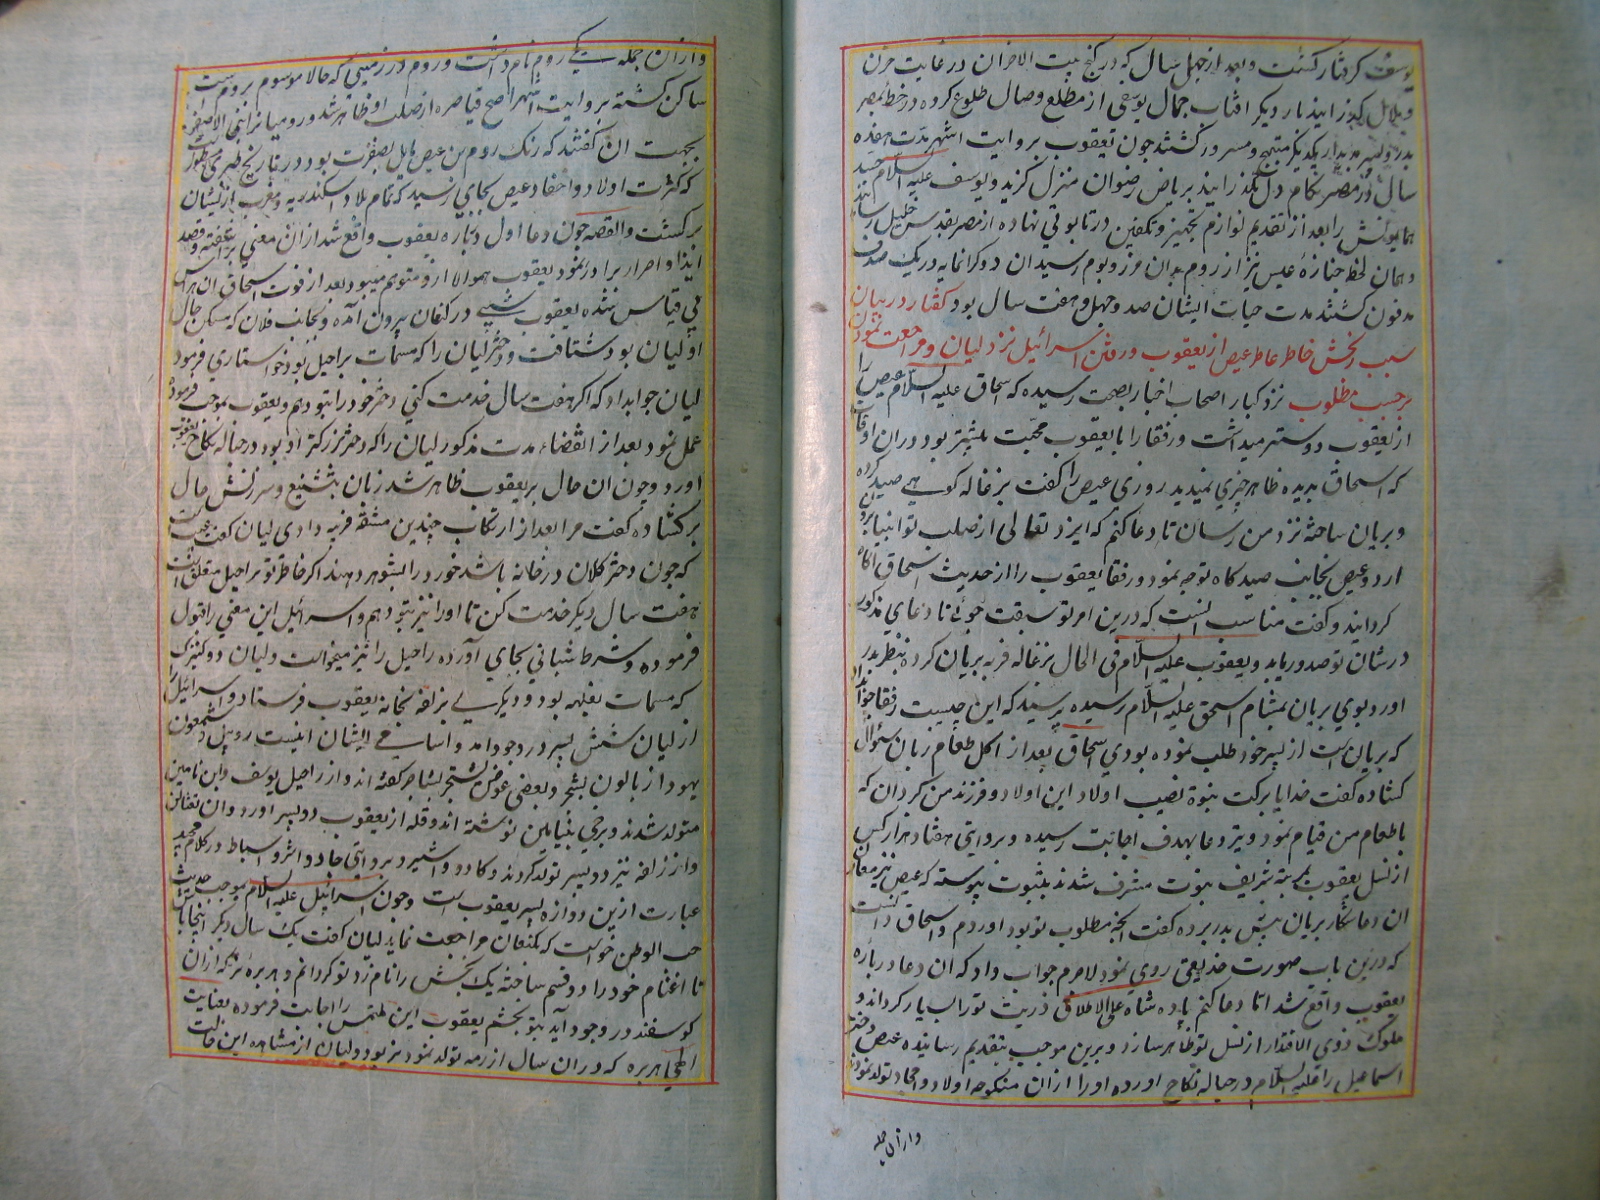 یوسف گرفتار گشت و بعد از چهل سال که در کنج بیت الاحزان در غایت حزن
و ملال بگذرانید بار دیگر افتاب جمال یوسفی از مطلع وصال طلوع کرده در خطه مصر
پدر و پسر بدیدار یکدیگر مبتهج و مسرور گشتند چون یعقوب بروایت اشهر مدت هفده
سال در مصر بکام دل بگذرانید بریاض رضوان منزل گزید و یوسف علیه السلام جسد
همایونش را بعد از تقدیم لوازم تجهیز و تکفین در تابوتی نهاده از مصر بقدس خلیل رسانید
و همان لحظ جنازهٔ عیص نیز از روم بدان مرز و بوم رسید ان دو گرانمایه در یک صدف
مدفون گشتند مدت حیات ایشان صد و چهل و هفت سال بود گفتار در بیان
سبب رنجش خاطر عاطر عیص از یعقوب و رفتن اسرائیل نزد لیان و مراجعت نمودن
برحسب مطلوب نزد کبار اصحاب اخبار بصحت رسیده که اسحاق علیه السلام عیص را
از یعقوب دوستر میداشت و رفقا را با یعقوب محبت بیشتر بود و دران اوقات
که اسحاق بدیده ظاهر چیزی نمیدید روزی عیص را گفت بزغاله کوهی صید کرده
و بریان ساخته نزد من رسان تا دعا کنم که ایزد تعالی از صلب تو انبیا بیرون
ارد و عیص بجانب صید کاه توجه نمود و رفقا یعقوب را از حدیث اسحاق اکاه
کردانید و گفت مناسب انست که درین امر تو سبقت جوئی تا دعای مذکور
درشان تو صدور یابد و یعقوب علیه السلام فی الحال بزغاله فربه بریان کرده بنظر پدر
اورد و بوی بریان بمشام اسحق علیه السلام رسیده پرسید که این چیست رفقا جواب داد
که بریان است از پسر خود طلب نموده بودی اسحاق بعد از اکل طعام زبان سئوال
گشاده گفت خدایا برکت نبوة نصیب اولاد این اولاد و فرزند من کردان که
باطعام من قیام نمود و تیر دعا بهدف اجابت رسیده و بروایتی هفتاد هزار کس
از نسل یعقوب بمرتبه شریف نبوت مشرف شدند بثبوت پیوسته که عیص نیز مقارن
ان دعا شکار بریان پیش پدر برده گفت انچه مطلوب تو بود اوردم و اسحاق دانست
که درین باب صورت خدیعتی روی نمود لاجرم جواب داد که ان دعا درباره
یعقوب واقع شد اما دعا کنم پادشاه علی الاطلاق ذریت تو را بسیار کرداند و
ملوک ذوی الاقتدار از نسل تو ظاهر سازد و برین موجب بتقدیم رسانیده عیص دختر
اسماعیل را علیه السلام در حباله نکاح اورده او را ازان منکوحه اولاد و امجاد تولد نمود
وازان جمله
وازان جمله یکی روم نام داشت و روم در زمینی که حالا موسوم بروم است
ساکن گشته بروایت اشهر اصح قیاصره از صلب او ظاهر شد و رومیانرا بنی الاصفر
بجهت ان گفتند که رنک روم بن عیص مایل بصفرت بود و در تاریخ طبری مسطور است
که کثرت اولاد و احفاد عیص بجای رسید که تمام بلاد اسکندریه و مغرب از ایشان
پر گشت و القصه چون دعا اول درباره یعقوب واقع شد ازان معنی بر آشفته و قصد
ایذا و اضرار برادر نمود یعقوب هموالا ازو متوهم میبود بعد از فوت اسحاق ان هراس
بی قیاس شده یعقوب شبی در کنعان بیرون آمده و بجانب فلان که مسکن خال
او لیان بود شتافت و دختر لیان را که مسمات براحیل بود خواستاری فرمود
لیان جواب داد که اگر هفت سال خدمت کنی دختر خود را بتو دهم و یعقوب بموجب فرموده
عمل نمود بعد از انقضاء مدت مذکور لیان را که دختر بزرکتر او بود در حباله نکاح یعقوب
اورد و چون ان حال بر یعقوب ظاهر شد زبان بتشنیع و سرزنش خال
بر گشاده گفت مرا بعد از ارتکاب چندین مشقه فریب دادی لیان گفت عیب است
که چون دختر کلان در خانه باشد خورد را بشوهر دهند اکر خاطر تو براحیل متعلق است
هفت سال دیگر خدمت کن تا او را نیز بتو دهم و اسرائیل این معنی را قبول
فرموده و شرط شبانی بجای آورده راحیل را نیز میخواست و لیان دو کنیزک
که مسمات ببلهه بود و دیکری بزلفه بخانه یعقوب فرستاد و اسرائیل را
از لیان شش پسر در وجود امد و اسامی ایشان اینست روبیل و شمعون
یهودا زبالون یشجر و بعضی عوض یشجر یشاجر گفته اند و از راحیل یوسف و ابن یامین
متولد شدند و برخی بنیامین نوشته اند و قله از یعقوب دو پسر اورد دان نفتالین
و از زلفه نیز دو پسر تولد کردند و کاد و و اشیر و بروایتی جاد و اشر و اسباط در کلام مجید
عبارت ازین دوازده پسر یعقوب است و چون اسرائیل علیه السلام بموجب حدیث
حب الوطن خواست که بکنعان مراجعت نماید لیان گفت یک سال دیگر اینجا باش
تا اغنام خود را دو قسم ساخته یک بخش را نام زد تو کردانم و هر بره نر که ازان
کوسفند در وجود آید بتو بخشم یعقوب این ملتمس را اجابت فرموده بعنایت
الهی هر بره که دران سال از رمه تولد نمود نر بود و لیان از مشاهده این حالت